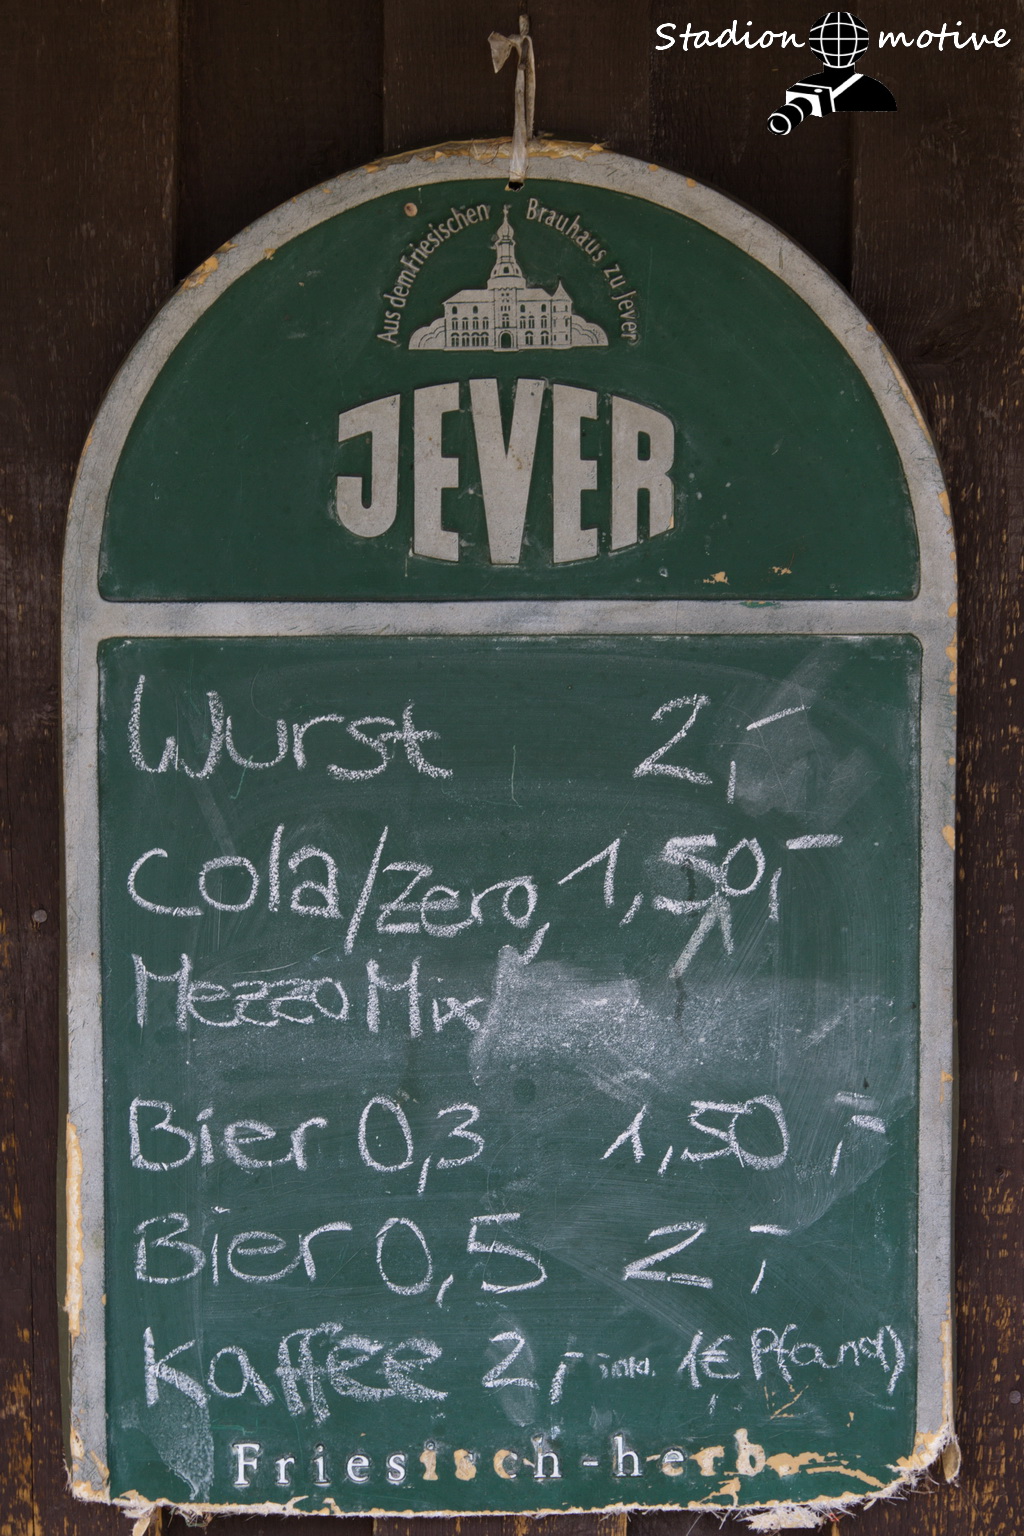 Stadion motive
Aus dem Friesischen Brauhaus zu Jever
JEVER
Wurst 2,-
Cola/Zero, 1,50,-
Mezzo Mix
Bier 0,3 1,50,-
Bier 0,5 2,-
Kaffee 2,- inkl. 1€ Pfand)
Friesisch-herb.